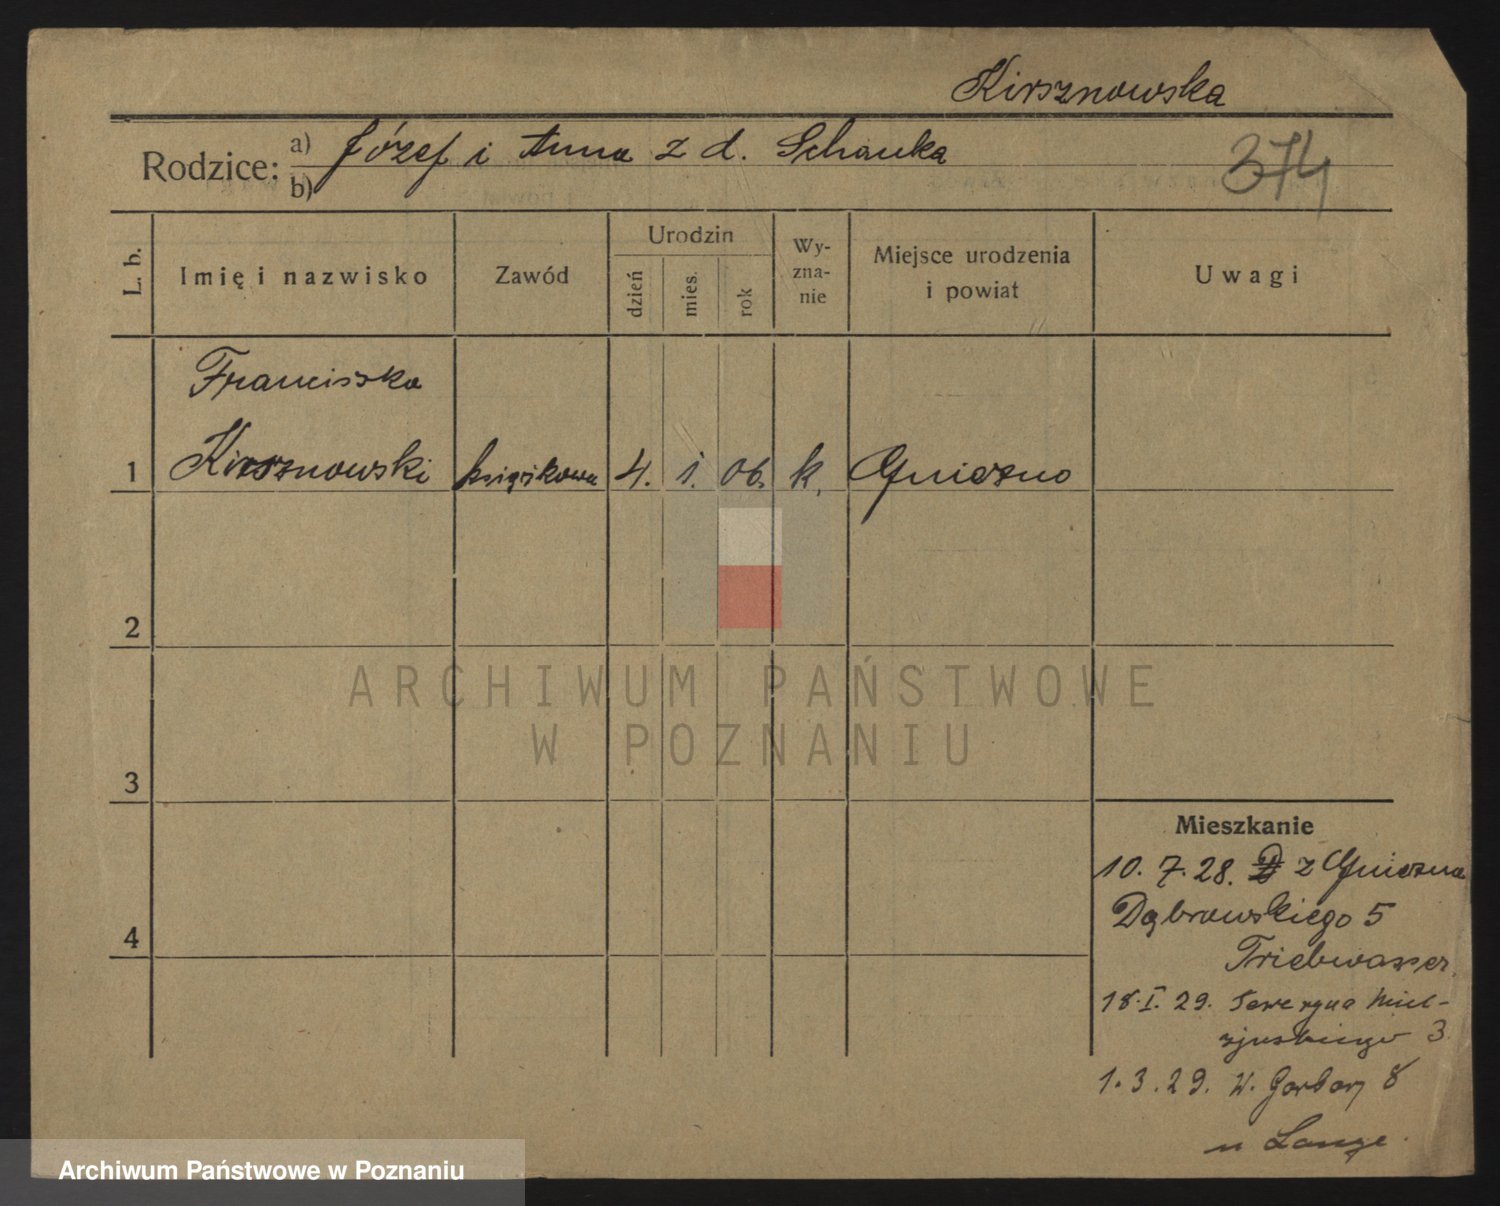 Kirsznowska
Rodzice: a) Józef i Anna z d. Schauka
b)
374
L. b.
Imię i nazwisko
Zawód
Urodzin
dzień
mies.
rok
Wy-
zna-
nie
Miejsce urodzenia
i powiat
Uwagi
Franciszka
1 Kirsznowski książkowa 4. i. 06. k. Gniezno
2
3
4
Mieszkanie
10. 7. 28. z Gniezna
Dąbrowskiego 5
Triebwasser.
18. I. 29. Seweryna Miel-
żyńskiego 3
1. 3. 29. W. Garbary 8
u Lange.
ARCHIWUM PAŃSTWOWE
W POZNANIU
Archiwum Państwowe w Poznaniu